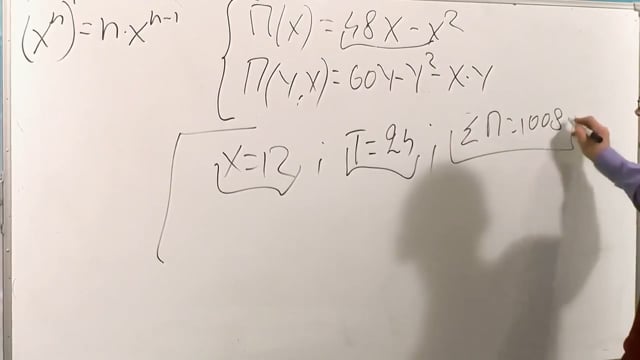 (xⁿ)' = n·xⁿ⁻¹
П(X) = 48X - X²
П(Y,X) = 60Y - Y² - X·Y
X=12 ; T=24 ; ΣП=1008